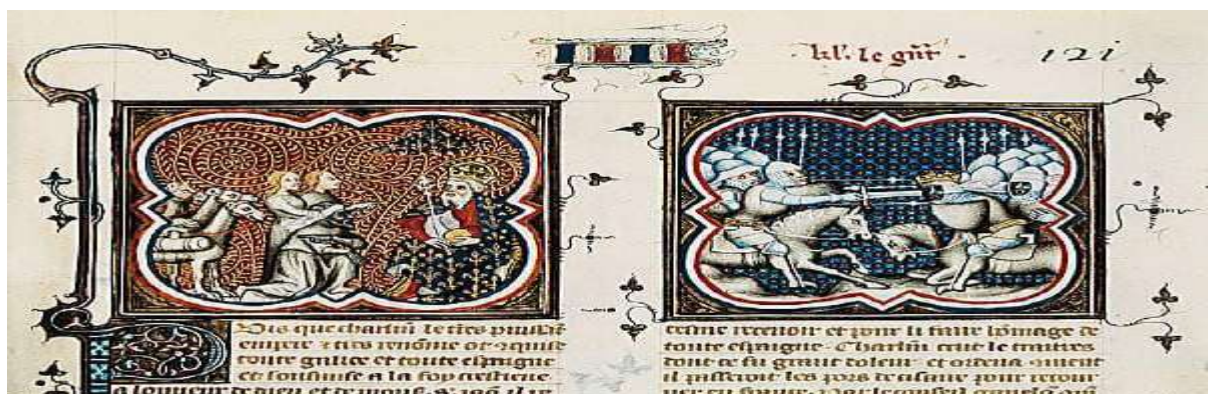 kl'. le gūt . 121
Puis que charlm̄ le tres puissāt
empere ⁊ tres renōme ot aquise
toute galice et toute espaigne
et sousmise a la foy crestiēne
a lonneur de dieu et de mons. s. iaq. il re
tesme receuoir et pour li faire hōmage de
toute espaigne. Charlm̄ crut le traitres
dont ce fu grant doleur. et ordena cōment
il passeroit les pors de cisaire pour retour
ner en france. Par le conseil